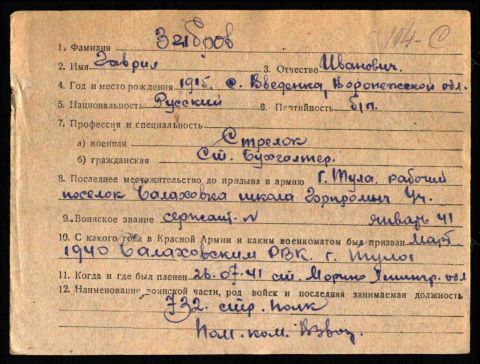 144-С
1. Фамилия Зибров
2. Имя Гаврил 3. Отчество Иванович.
4. Год и место рождения 1915, с. Введенка, Воронежской обл.
5. Национальность Русский 6. Партийность б/п.
7. Профессия и специальность
а) военная Стрелок
б) гражданская Ст. Бухгалтер.
8. Последнее местожительство до призыва в армию г. Тула, рабочий
поселок Балаховка школа
9. Воинское звание сержант. январь 41
10. С какого года в Красной Армии и каким военкоматом был призван март
1940 Балаховским РВК. г. Тула
11. Когда и где был пленен 26.07.41 ст. обл
12. Наименование воинской части, род войск и последняя занимаемая должность
732. стр. полк
Пом. ком. взвод.